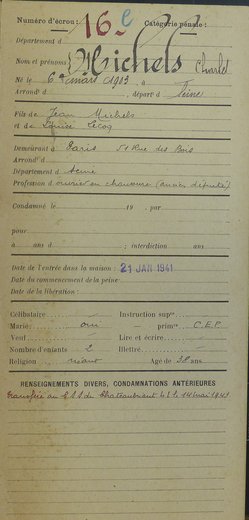 Numéro d'écrou : 16e Catégorie pénale :
Département d
Nom et prénoms Michels Charles
Né le 6 mars 1903 à
Arrond' d , départ' d Seine
Fils de Jean Michels
et de Louise Lecoq
Demeurant à Paris 51 Rue des Bois
Arrond' d
Département d Seine
Profession d ouvrier en chaussure (ancien député)
Condamné le 19 par
pour
à ans d ; interdiction ans
Date de l'entrée dans la maison : 21 JAN 1941
Date du commencement de la peine
Date de la libération :
Célibataire Instruction sup^re
Marié oui — prim^re C.E.P.
Veuf Lire et écrire
Nombre d'enfants 2 Illettré
Religion néant Age de 38 ans
RENSEIGNEMENTS DIVERS, CONDAMNATIONS ANTÉRIEURES
Transféré au C.S.S. de Chateaubriant le 14 mai 1941